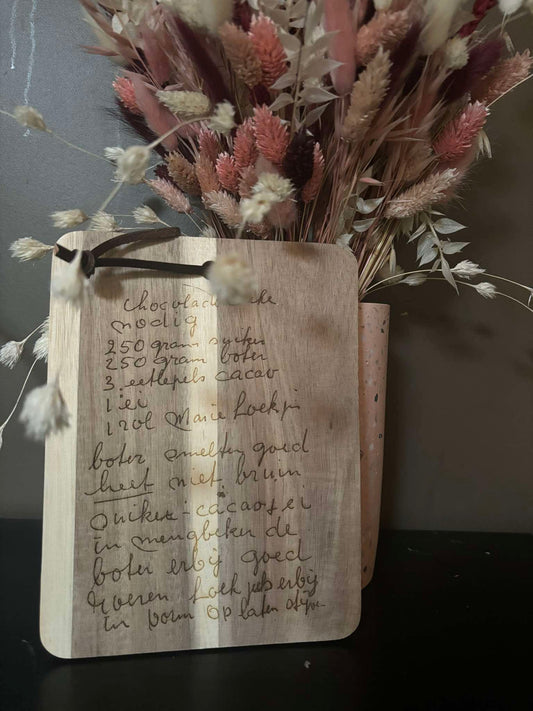 chocolade
nodig
250 gram suiker
250 gram boter
3 eetlepels cacao
1 ei
1 rol Marie koekjes
boter smelten goed
heet niet bruin
suiker - cacao + ei
in mengbeker de
boter erbij goed
roeren koekjes erbij
in vorm op laten stijve